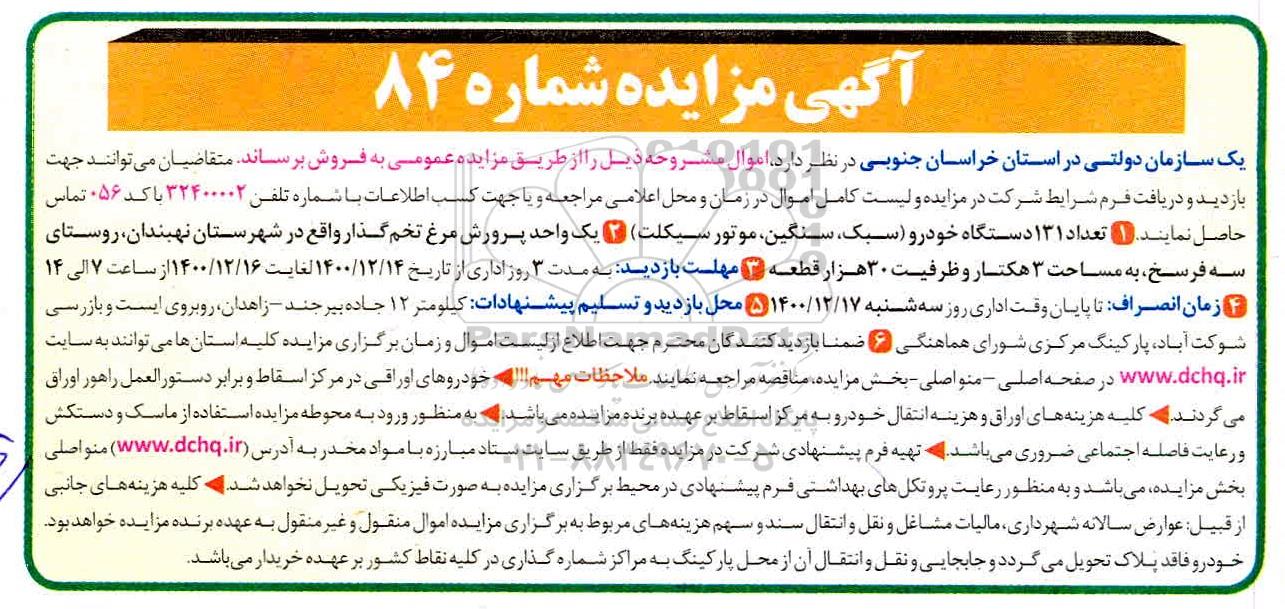 آگهی مزایده شماره ۸۴
یک سازمان دولتی در استان خراسان جنوبی در نظر دارد، اموال مشروحه ذیل را از طریق مزایده عمومی به فروش برساند. متقاضیان می‌توانند جهت
بازدید و دریافت فرم شرایط شرکت در مزایده و لیست کامل اموال در زمان و محل اعلامی مراجعه و یا جهت کسب اطلاعات با شماره تلفن ۳۲۴۰۰۰۰۲ با کد ۰۵۶ تماس
حاصل نمایند. ۱ تعداد ۱۳۱ دستگاه خودرو (سبک، سنگین، موتور سیکلت) ۲ یک واحد پرورش مرغ تخم گذار واقع در شهرستان نهبندان، روستای
سه فرسخ، به مساحت ۳ هکتار و ظرفیت ۳۰ هزار قطعه ۳ مهلت بازدید: به مدت ۳ روز اداری از تاریخ ۱۴۰۰/۱۲/۱۴ لغایت ۱۴۰۰/۱۲/۱۶ از ساعت ۷ الی ۱۴
۴ زمان انصراف: تا پایان وقت اداری روز سه‌شنبه ۱۴۰۰/۱۲/۱۷ ۵ محل بازدید و تسلیم پیشنهادات: کیلومتر ۱۲ جاده بیرجند - زاهدان، روبروی ایست و بازرسی
شوکت آباد، پارکینگ مرکزی شورای هماهنگی ۶ ضمنا بازدیدکنندگان محترم جهت اطلاع از لیست اموال و زمان برگزاری مزایده کلیه استان‌ها می‌توانند به سایت
www.dchq.ir در صفحه اصلی - منو اصلی - بخش مزایده، مناقصه مراجعه نمایند. ملاحظات مهم!!! خودروهای اوراقی در مرکز اسقاط و برابر دستورالعمل راهور اوراق
می گردند. کلیه هزینه‌های اوراق و هزینه انتقال خودرو به مرکز اسقاط بر عهده برنده مزایده می باشد. به منظور ورود به محوطه مزایده استفاده از ماسک و دستکش
و رعایت فاصله اجتماعی ضروری می‌باشد. تهیه فرم پیشنهادی شرکت در مزایده فقط از طریق سایت ستاد مبارزه با مواد مخدر به آدرس (www.dchq.ir) منو اصلی
بخش مزایده، می‌باشد و به منظور رعایت پروتکل‌های بهداشتی فرم پیشنهادی در محیط برگزاری مزایده به صورت فیزیکی تحویل نخواهد شد. کلیه هزینه‌های جانبی
از قبیل: عوارض سالانه شهرداری، مالیات مشاغل و نقل و انتقال سند و سهم هزینه‌های مربوط به برگزاری مزایده اموال منقول و غیر منقول به عهده برنده مزایده خواهد بود.
خودرو فاقد پلاک تحویل می گردد و جابجایی و نقل و انتقال آن از محل پارکینگ به مراکز شماره گذاری در کلیه نقاط کشور بر عهده خریدار می‌باشد.
ParsNamadData
۰۲۱-۸۸۳۴۹۶۷۰-۵